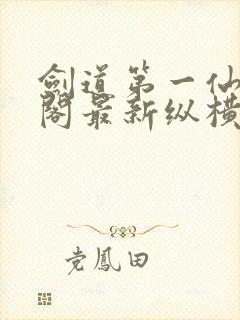 劍道第一仙
閣最新纵横
党鳳田